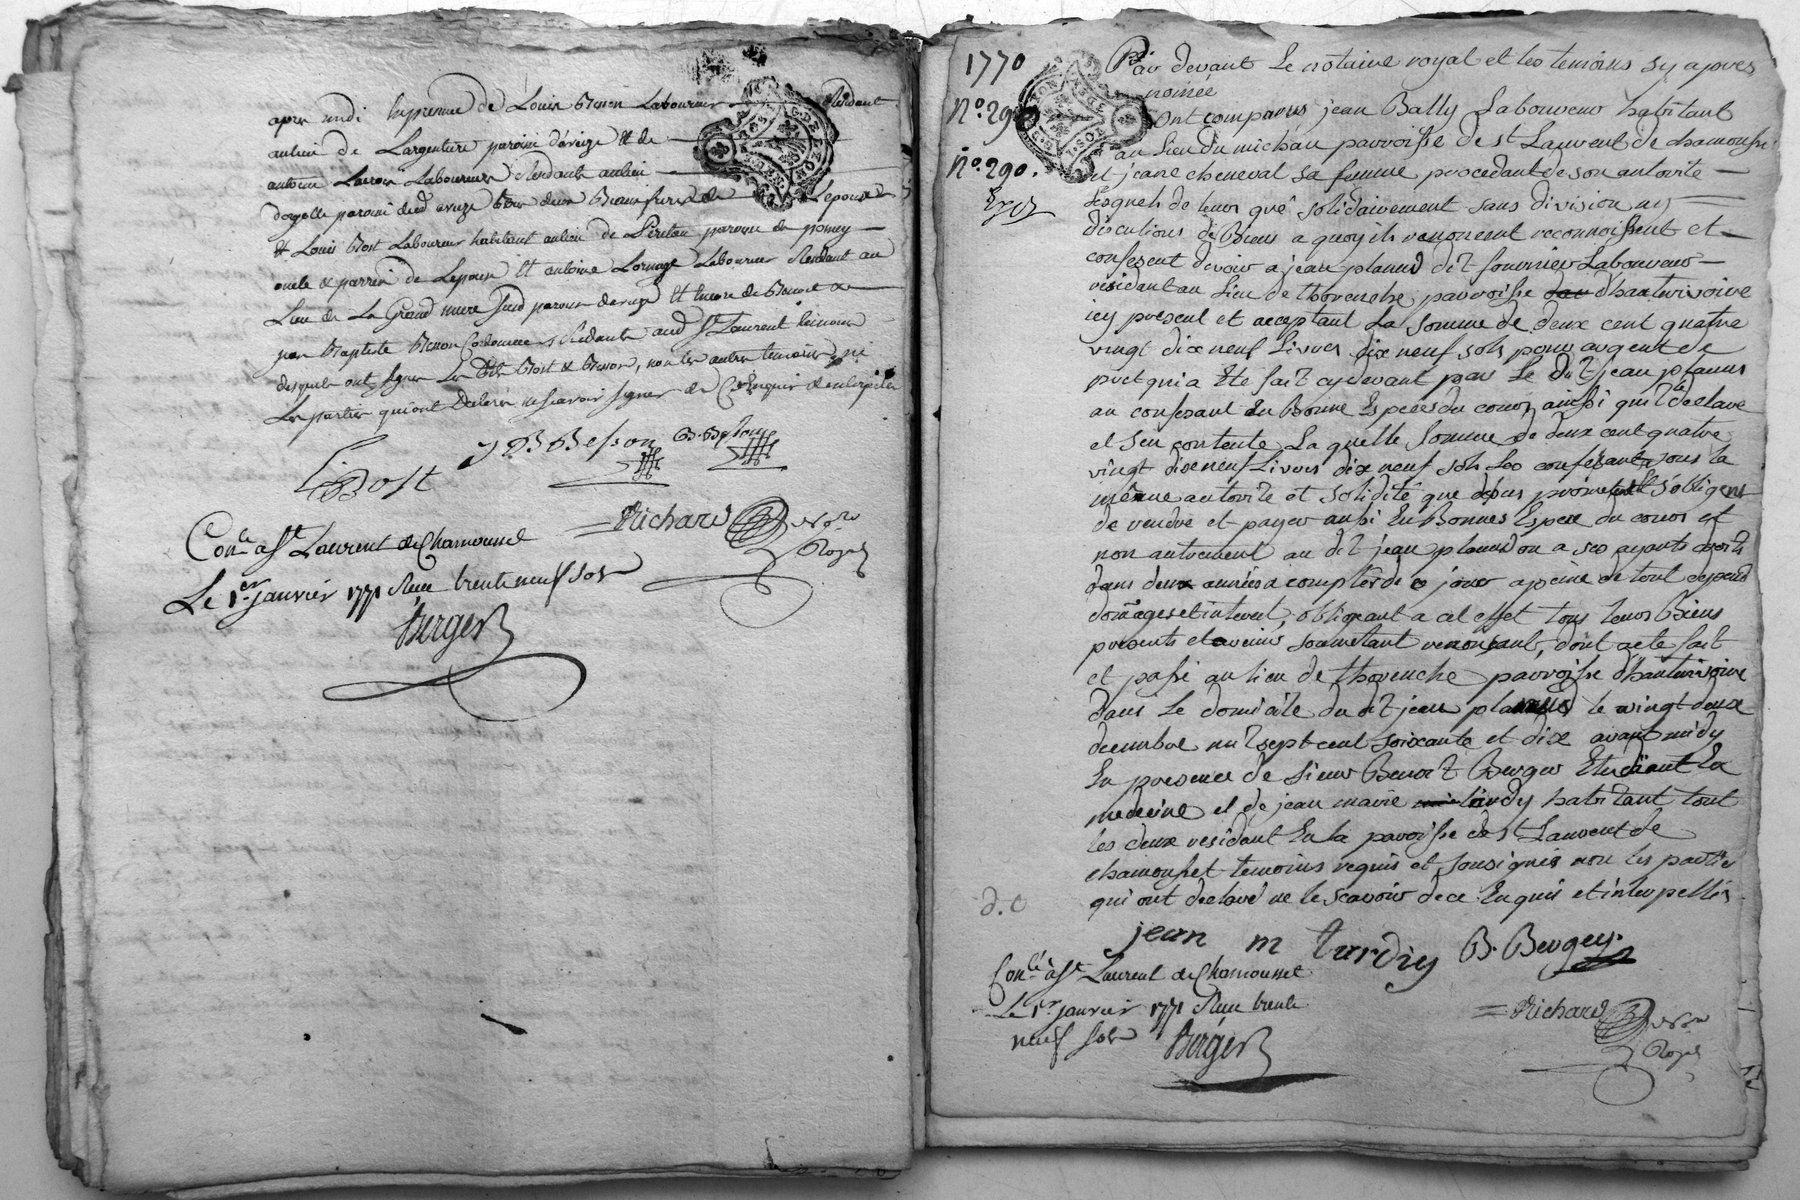 apres midi En presence de Louis Besson Laboureur Residant
au lieu de Largentiere paroisse d'aveize Et de
antoine Laboureur Residant au lieu
paroisse dud aveize de Lepouse
Et Louis Bost Laboureur habitant au lieu de paroisse de pomey
oncle & parrein de Lepoux Et antoine Laboureur Residant au
Lieu de La Grand paroisse daveize Et encore de
jean Baptiste Besson Residant aud St Laurent temoins
desquels ont signes Les dits Bost & Besson, non les autres temoins ni
Les parties qui ont Declares ne scavoir signer de Ce Enquis & interpelles
L Bost
J B Besson B. Besson
Richard nore
Royal
Conlé a St Laurent de Chamousset
Le 1er janvier 1771 Reçu trente neuf sols
Berger
1770
No. 29
No. 290.
Par devant Le notaire royal et les temoins sy apres
nomée
ont comparus jean Bally Laboureur habitant
au Lieu du michau parroisse de st Laurent de chamousset
et jeane cheneval sa femme procedant de son autorité
Lesquels de leur gré solidairement sans division ny
discutions de Biens a quoy ils renoncent reconnoissent et
confessent devoir a jean planus dit fournier Laboureur
residant au Lieu de thorenche parroisse d'hauterivoire
icy present et acceptant La somme de deux cent quatre
vingt dix neuf Livres dix neuf sols pour argent de
pret qui a Ete fait cy devant par Le dit jean planus
au confesant En Bonne Especes du cours ainssi quil declare
et s'en contente La quelle somme de deux cent quatre
vingt dix neuf Livres dix neuf sols Les confesants sous la
même autorite et solidité que desus promettent s'obligent
de rendre et payer aussi En Bonnes Espece du cours et
non autrement au dit jean planus ou a ses ayants droits
dans deux années a compter de ce jour a peine de tout depend
domages et interest, obligeant a cet effet tous leurs Biens
presents et avenir soumetant renonçant, dont acte fait
et passé au lieu de thorenche parroisse d'hauterivoire
dans Le domicile du dit jean planus le vingt deux
decembre mil sept cent soixante et dix avant midy
En presence de sieur Benoit Berger Etudiant En
medecine et de jean marie tardy habitant tout
les deux residant En la parroisse de st Laurent de
chamousset temoins requis et sousignés non les parties
qui ont declaré ne le scavoir de ce Enquis et interpellés
d. c
jean m tardiy B. Berger
Conlé a St Laurent de Chamousset
Le 1er janvier 1771 Reçu trente
neuf sols Berger
Richard nore
Royal